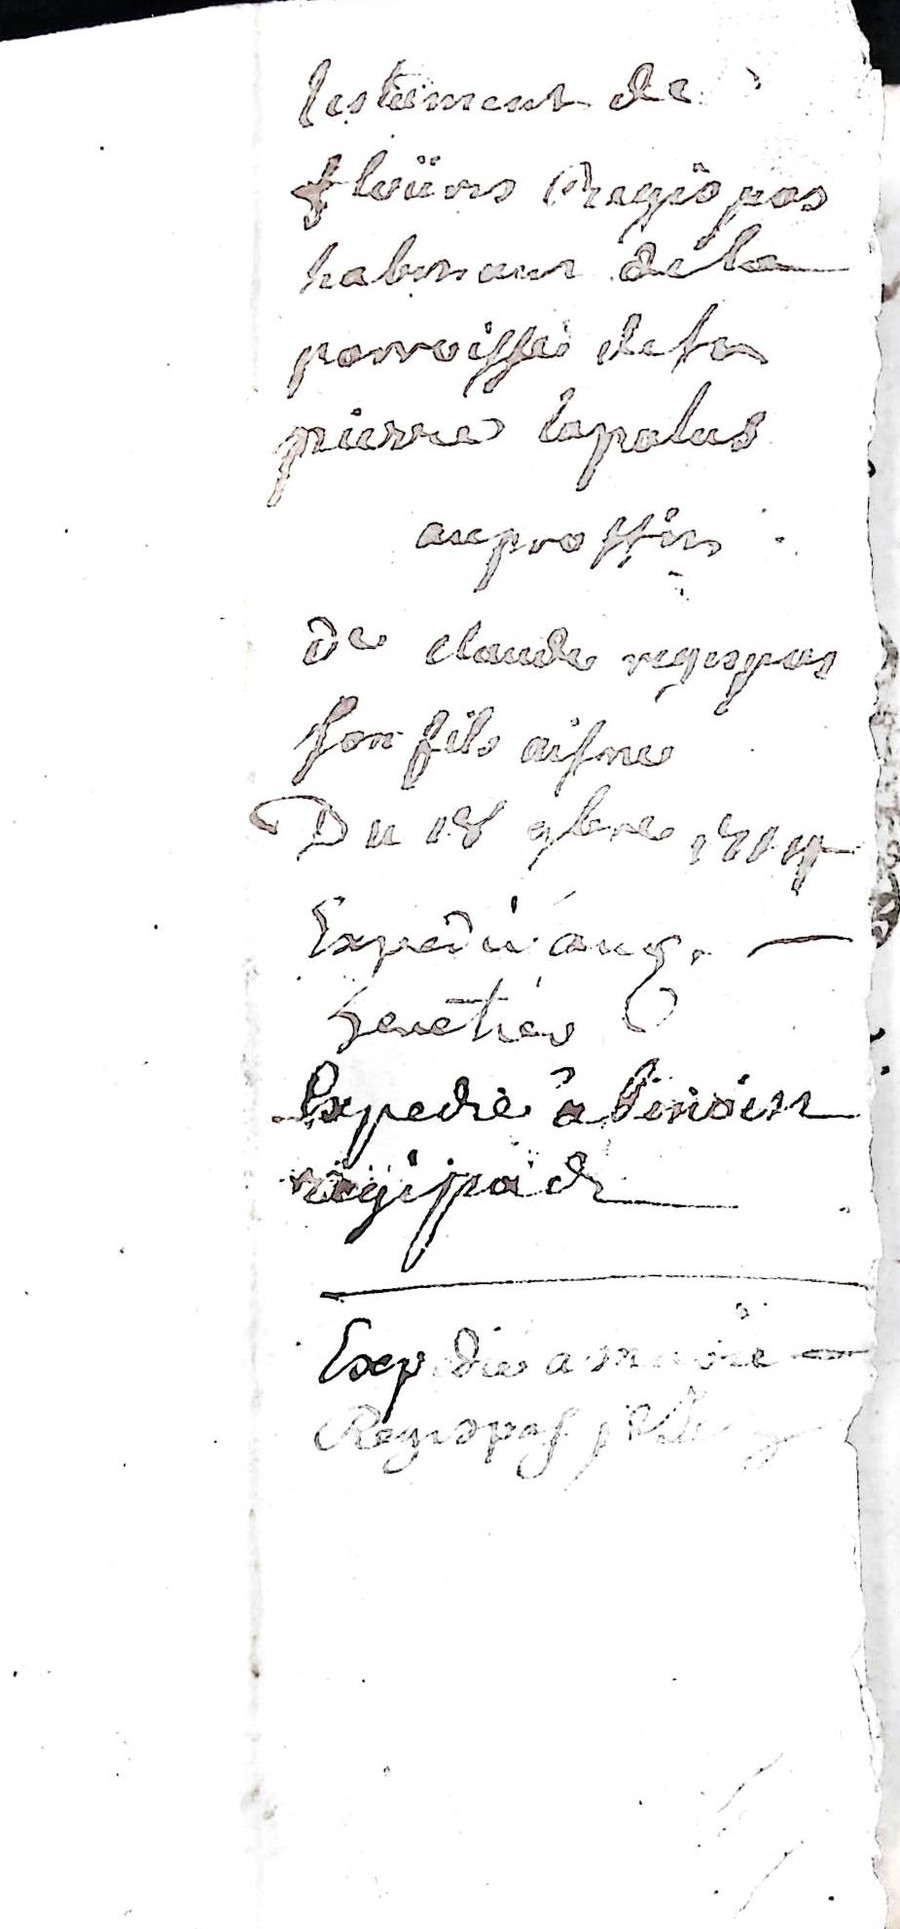 testament de
fleürs Regis pas
habitant de la
parroisse de sn
pierre lapalus
au proffit
de claude regispas
son fils aisne
Du 18 9bre 1714
Expedié aux
heretiers
Expedie a benoist
regipads
Expedie a marie
Regispas